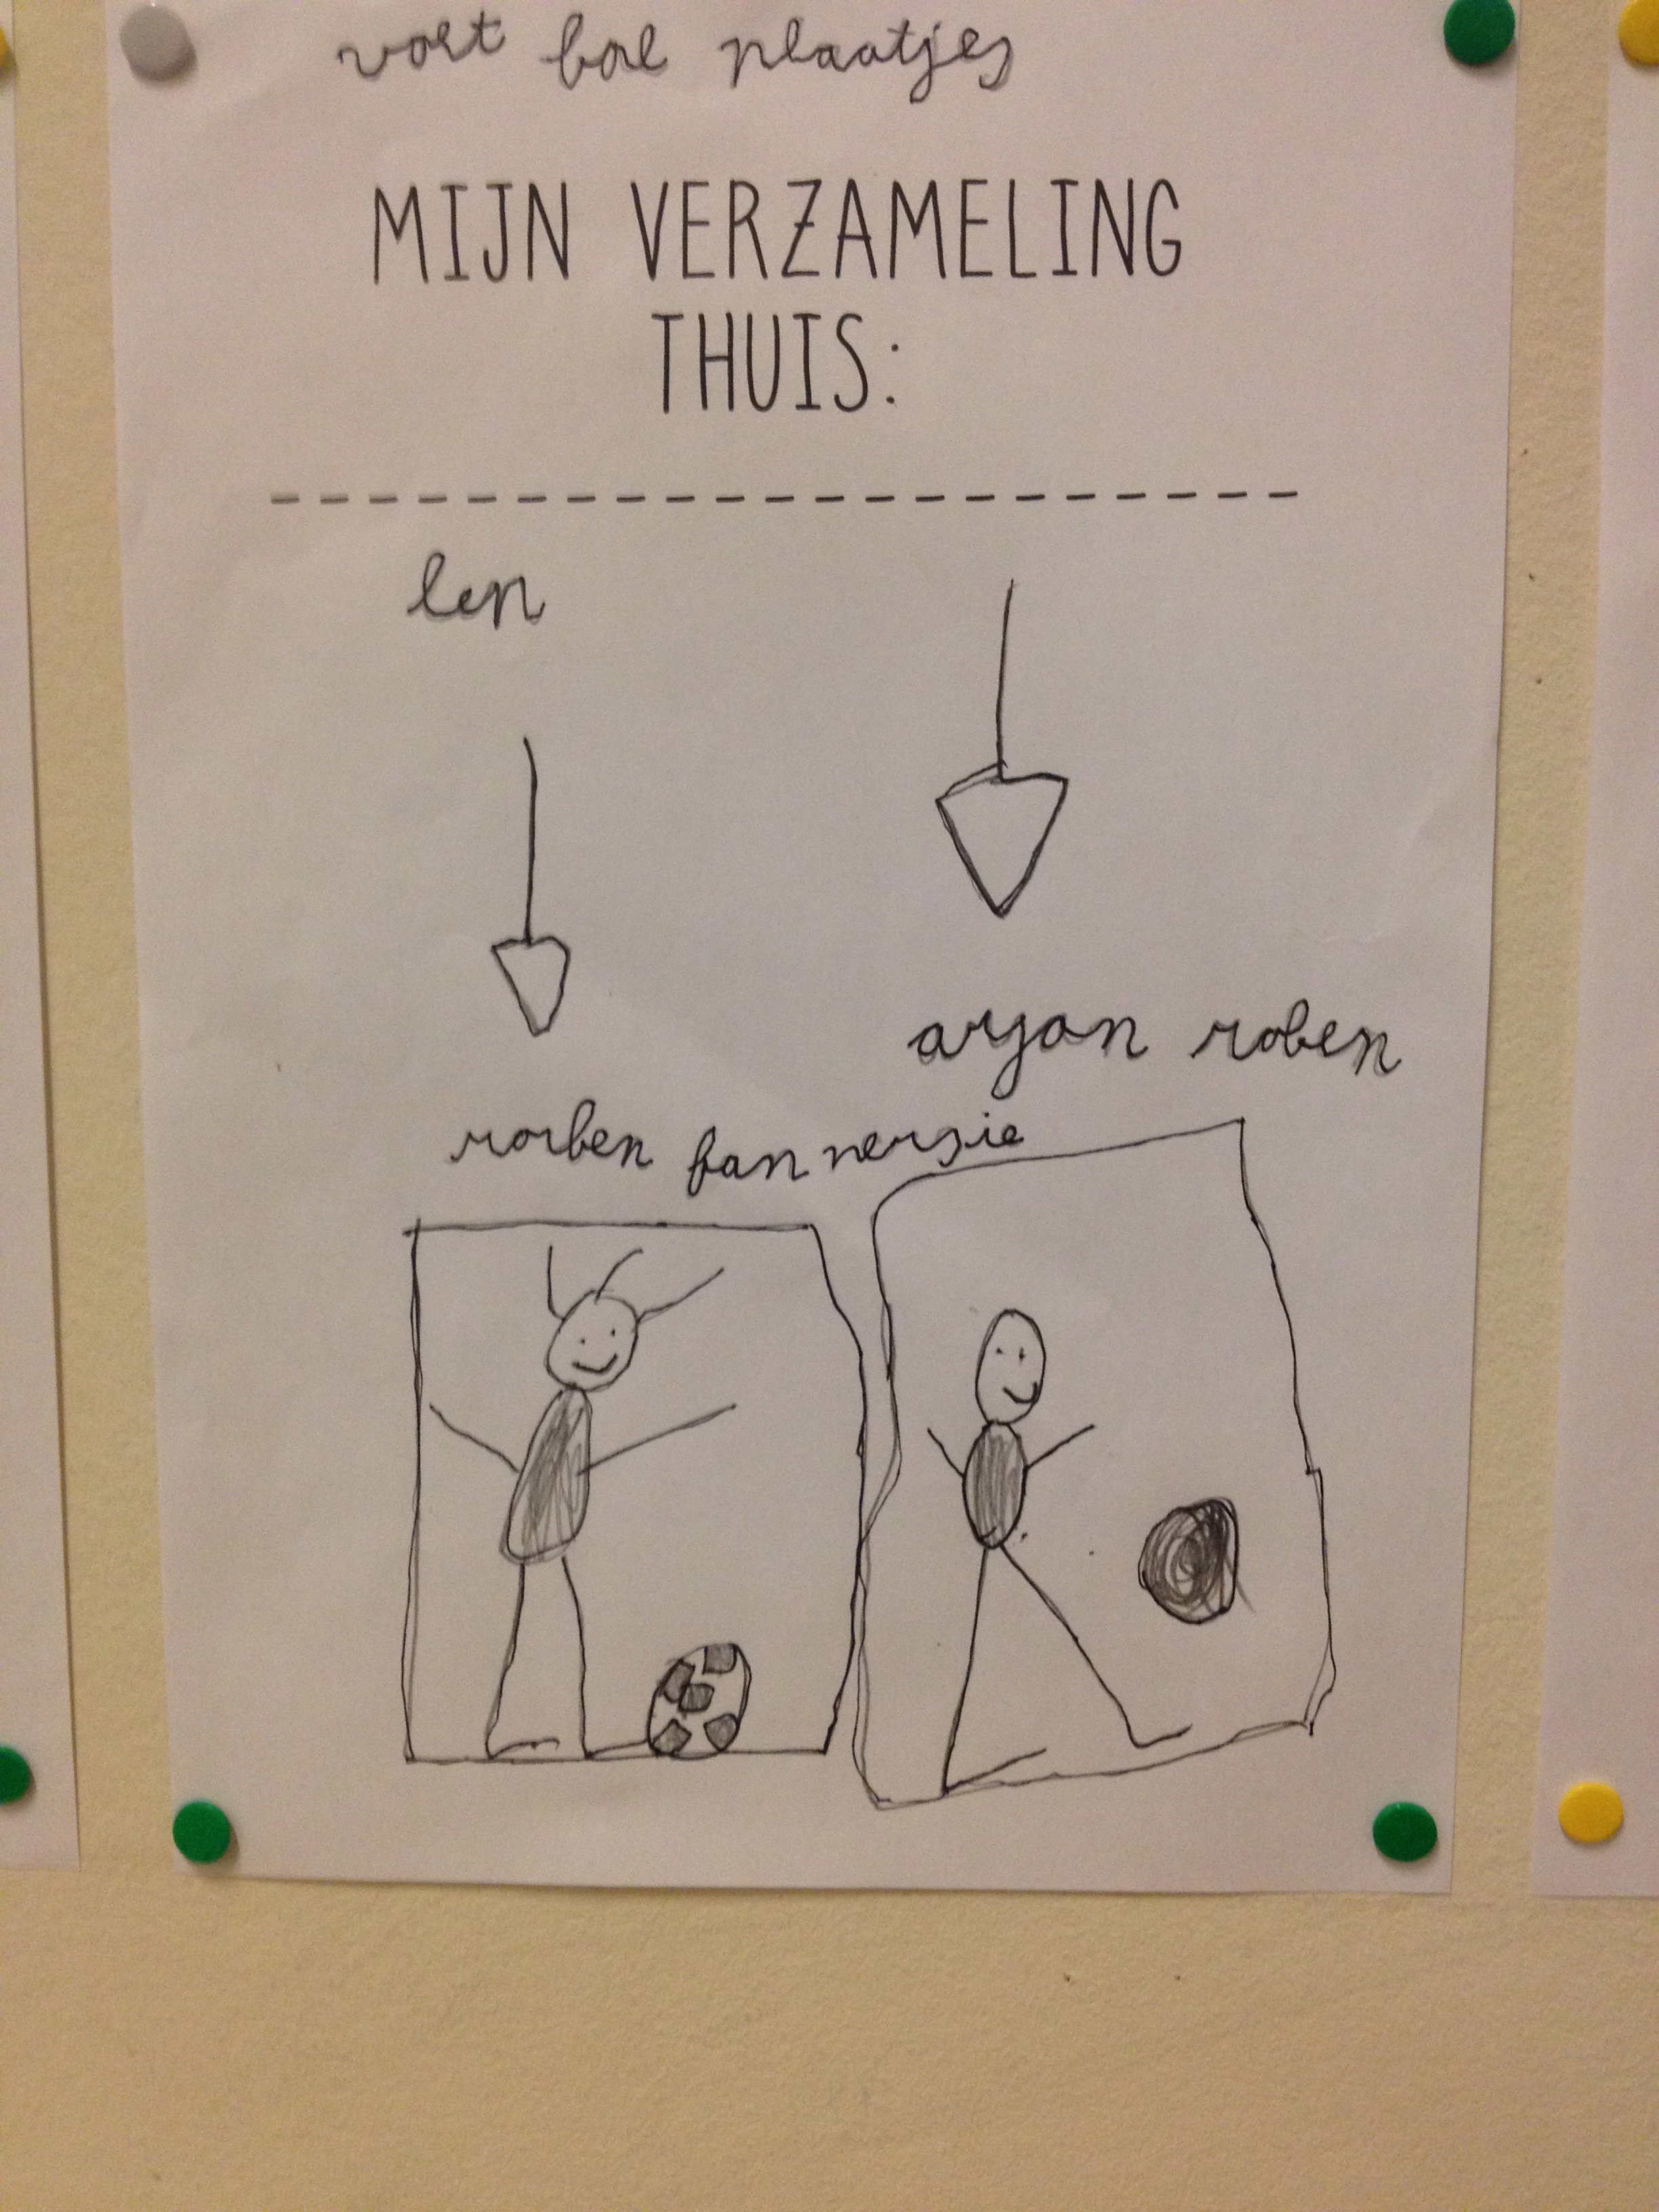 voet bal plaatjes
MIJN VERZAMELING
THUIS:
len
arjan roben
rorben fan nersie